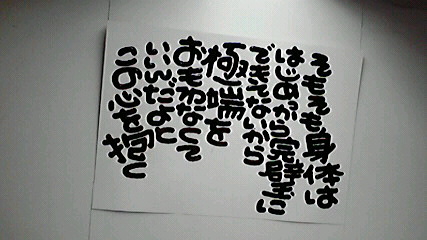 そもそも身体は
はじめから完璧に
できてないから
極端を
おもわなくて
いいんだよと
この心を抱く